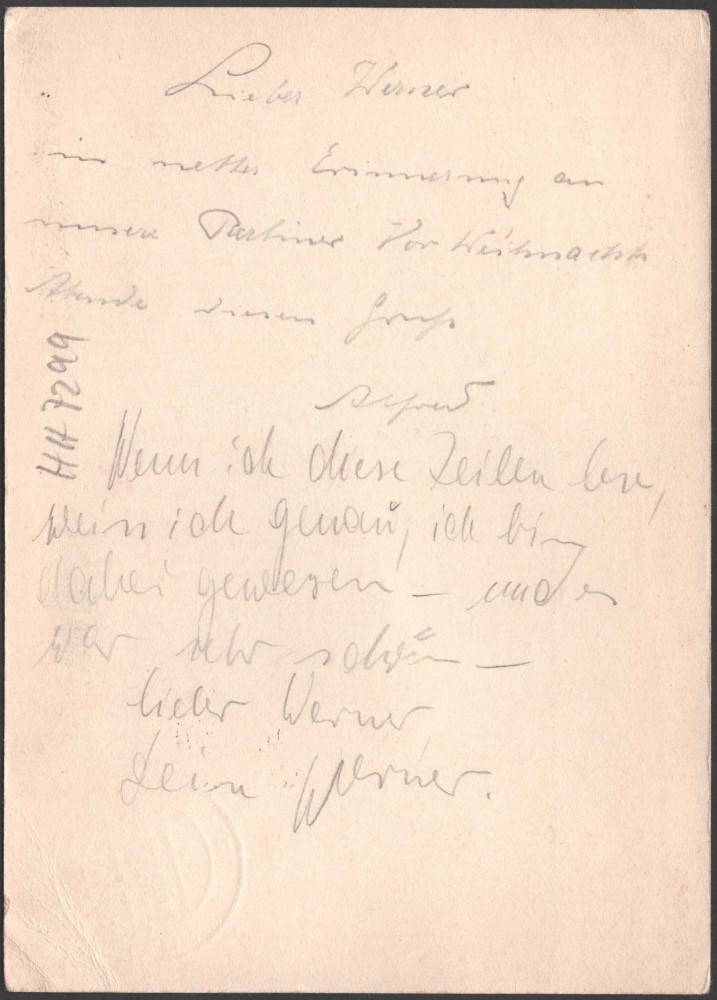 Lieber Werner
in netter Erinnerung an
unsere Berliner Vor Weihnachts
Abende diesen Gruß
Alfred
HH7299
Wenn ich diese Zeilen lese,
weiss ich genau, ich bin
dabei gewesen – und es
war sehr schön –
lieber Werner
Dein Werner.